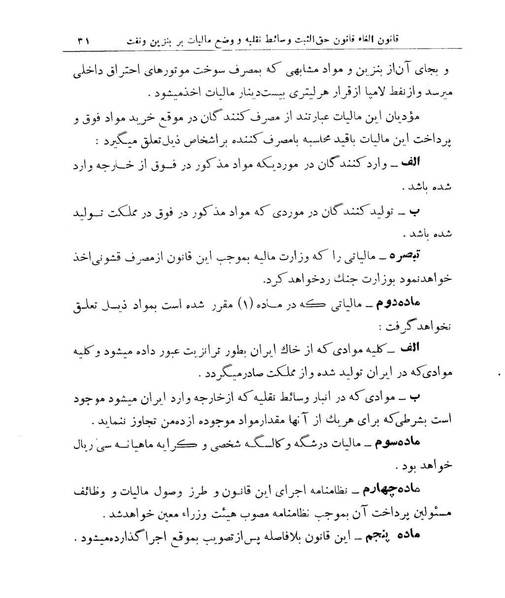 قانون الغاء قانون حق‌الثبت وسائط نقلیه و وضع مالیات بر بنزین و نفت ۳۱
و بجای آن از بنزین و مواد مشابهی که بمصرف سوخت موتورهای احتراق داخلی
میرسد و از نفط لامپا از قرار هر لیتری بیست دینار مالیات اخذ میشود .
مؤدیان این مالیات عبارتند از مصرف کنند گان در موقع خرید مواد فوق و
پرداخت این مالیات باقید محاسبه بامصرف کننده بر اشخاص ذیل تعلق میگیرد :
الف ــ وارد کنند گان در موردیکه مواد مذکور در فوق از خارجه وارد
شده باشد .
ب ــ تولید کنند گان در موردی که مواد مذکور در فوق در مملکت تولید
شده باشد .
تبصره ــ مالیاتی را که وزارت مالیه بموجب این قانون از مصرف قشونی اخذ
خواهد نمود بوزارت جنك رد خواهد کرد.
ماده دوم ــ مالیاتی که در ماده (۱) مقرر شده است بمواد ذیل تعلق
نخواهد گرفت :
الف ــ کلیه موادی که از خاك ایران بطور ترانزیت عبور داده میشود و کلیه
موادی که در ایران تولید شده و از مملکت صادر میگردد .
ب ــ موادی که در انبار وسائط نقلیه که از خارجه وارد ایران میشود موجود
است بشرطی که برای هر یك از آنها مقدار مواد موجوده از ده من تجاوز ننماید .
ماده سوم ــ مالیات درشگه و کالسگه شخصی و کرایه ماهیانه سی ریال
خواهد بود .
ماده چهارم ــ نظامنامه اجرای این قانون و طرز وصول مالیات و وظائف
مسئولین پرداخت آن بموجب نظامنامه مصوب هیئت وزراء معین خواهد شد .
ماده پنجم ــ این قانون بلافاصله پس از تصویب بموقع اجرا گذارده میشود .